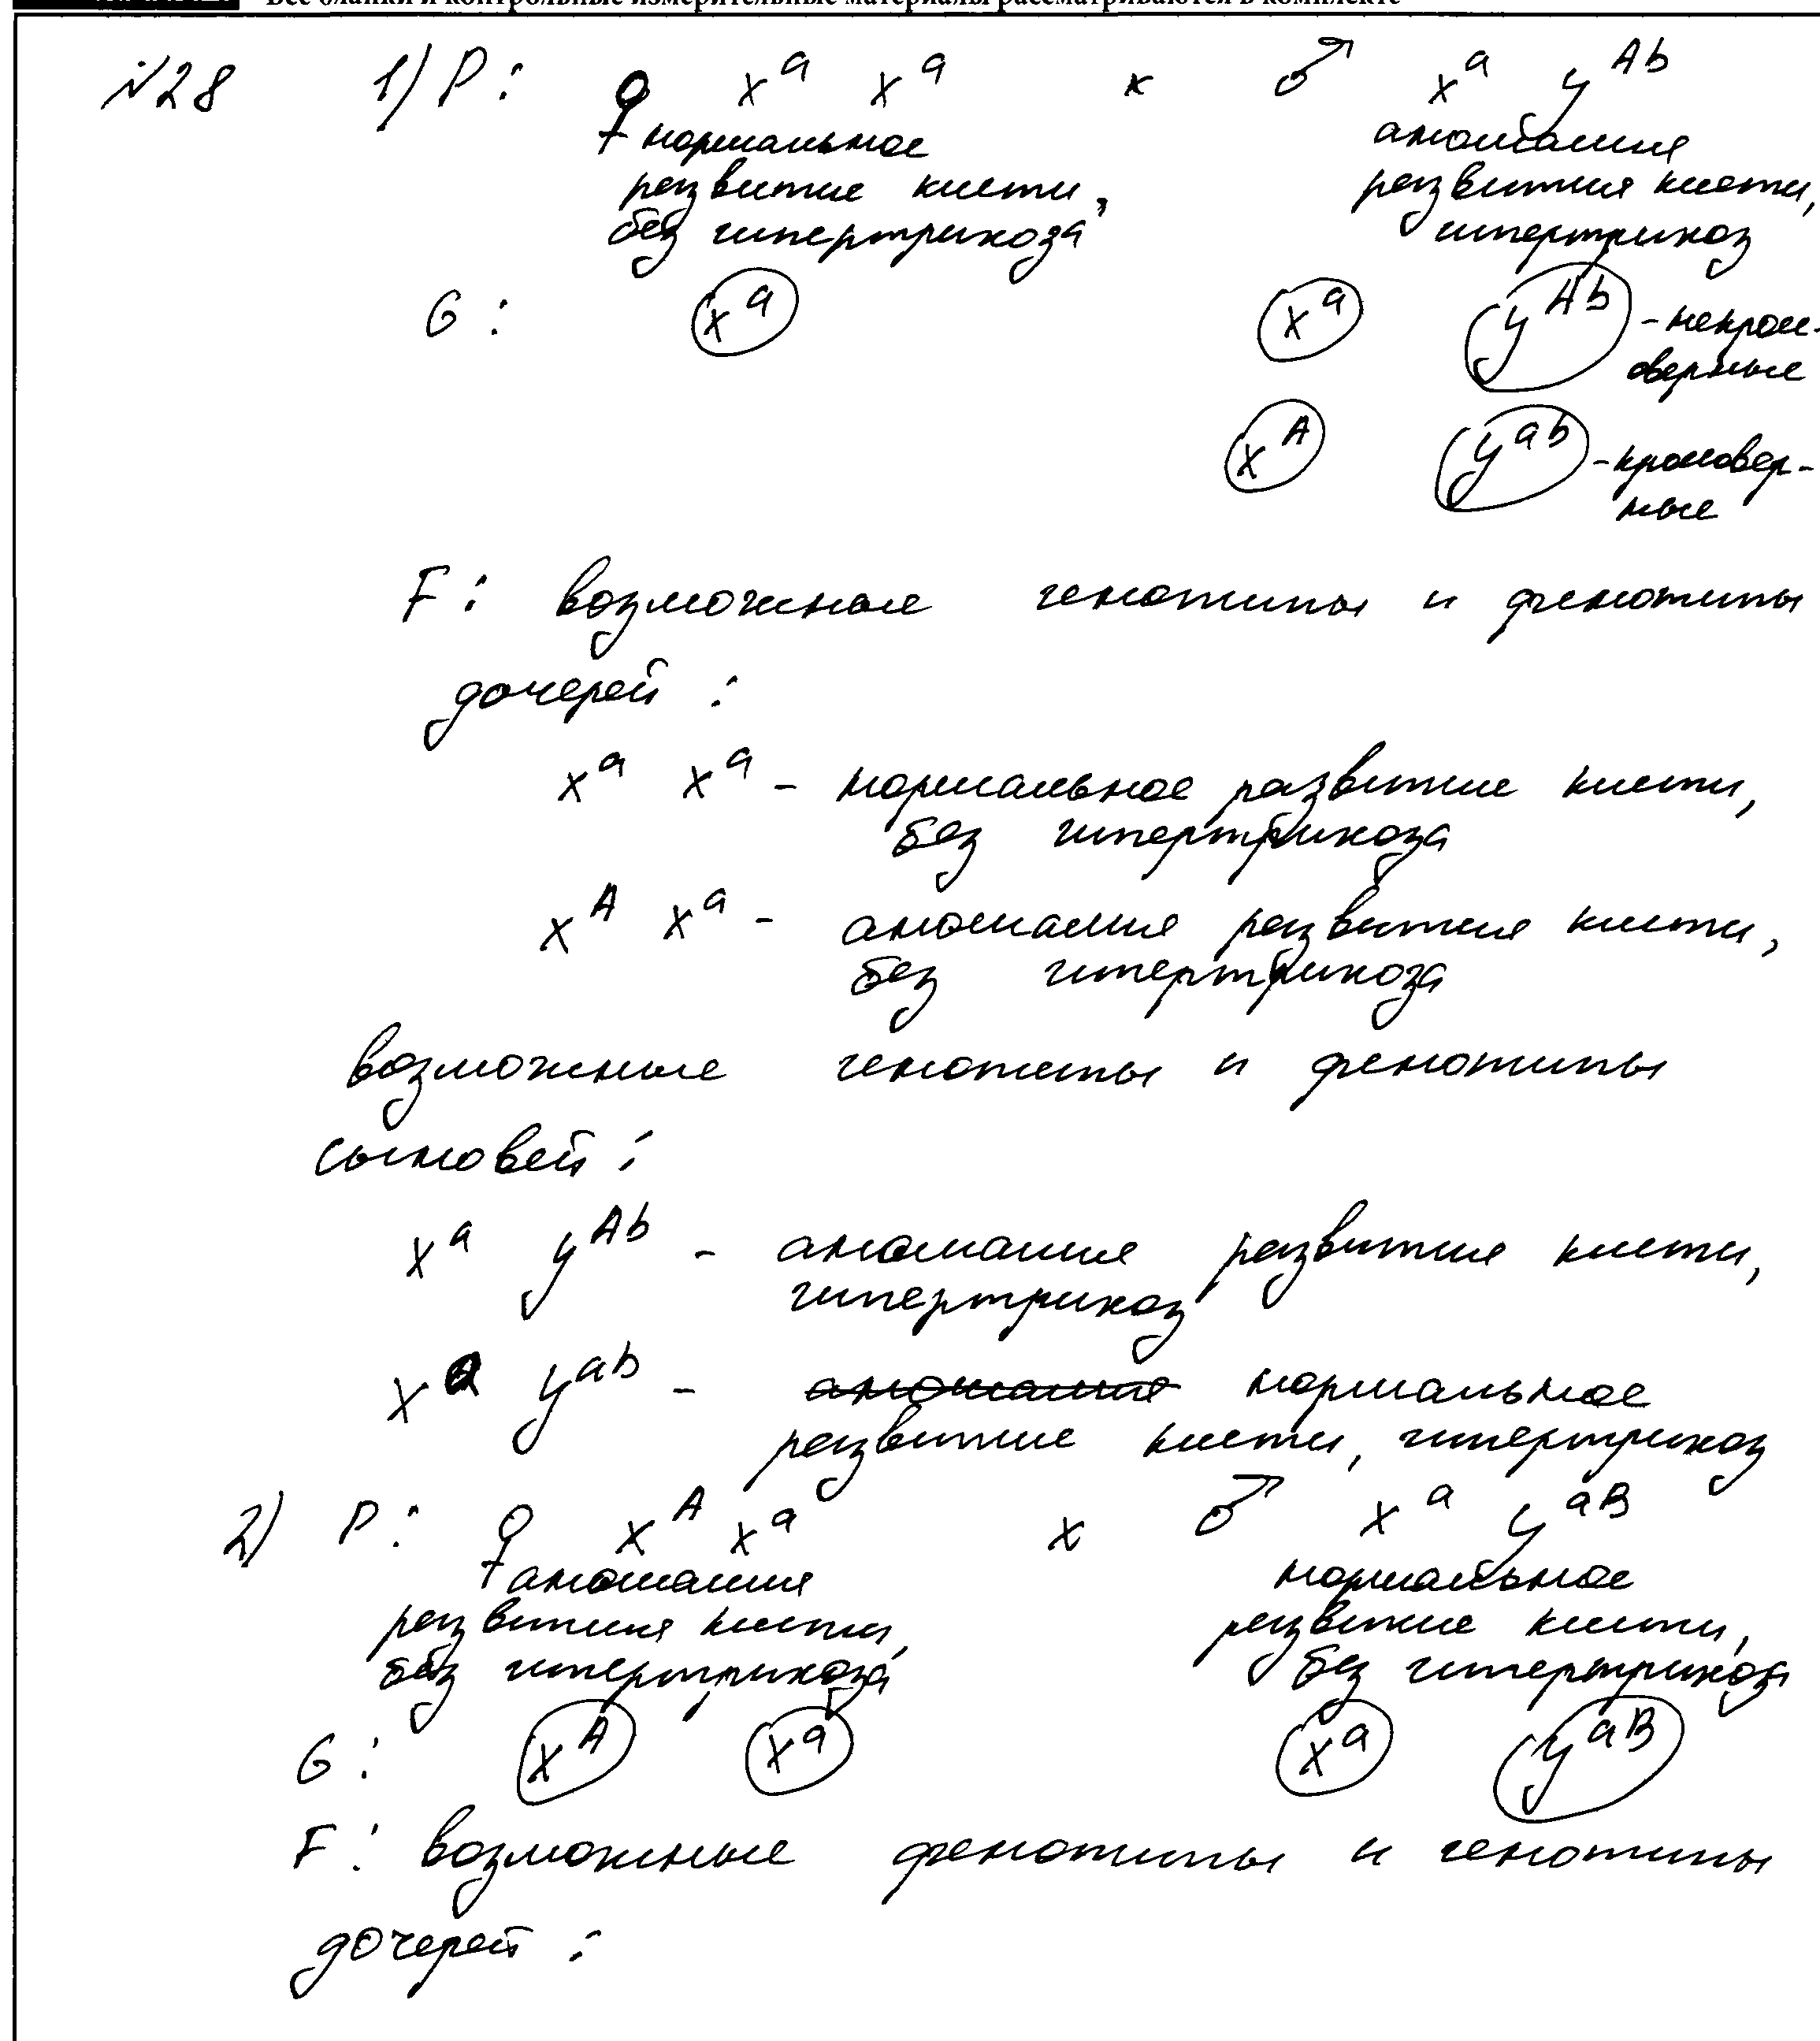 Все бланки и контрольные измерительные материалы рассматриваются в комплекте
№28 1) P: ♀ x^a x^a × ♂ x^a y^Ab
нормальное аномалия
развитие кисти, развития кисти,
без гипертрихоза гипертрихоз
G: x^a x^a y^Ab - некрос-
оверные
x^A y^ab - кроссовер-
ные
F: возможные генотипы и фенотипы
дочерей:
x^a x^a - нормальное развитие кисти,
без гипертрихоза
x^A x^a - аномалия развития кисти,
без гипертрихоза
возможные генотипы и фенотипы
сыновей:
x^a y^Ab - аномалия развития кисти,
гипертрихоз
x^a y^ab - аномалия нормальное
развитие кисти, гипертрихоз
2) P: ♀ x^A x^a x ♂ x^a y^aB
аномалия нормальное
развития кисти, развитие кисти,
без гипертрихоза без гипертрихоза
G: x^A x^a x^a y^aB
F: возможные фенотипы и генотипы
дочерей: